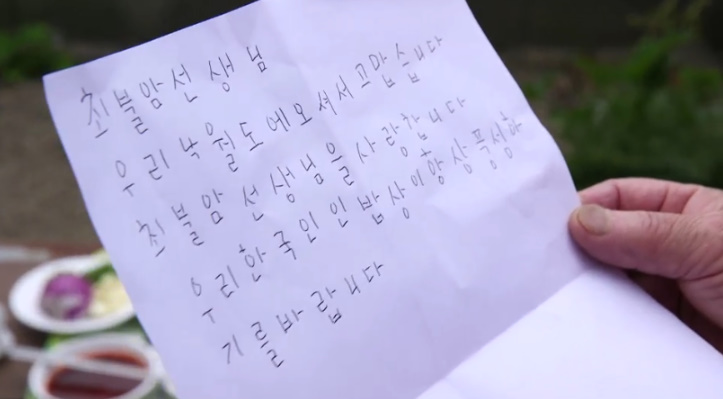 최불암선 생 님
우리 낙월도에오셔서 고맙습니다
최불암 선생님을사랑합니다
우리한국인인밥상이항상풍성하
기를바랍니다